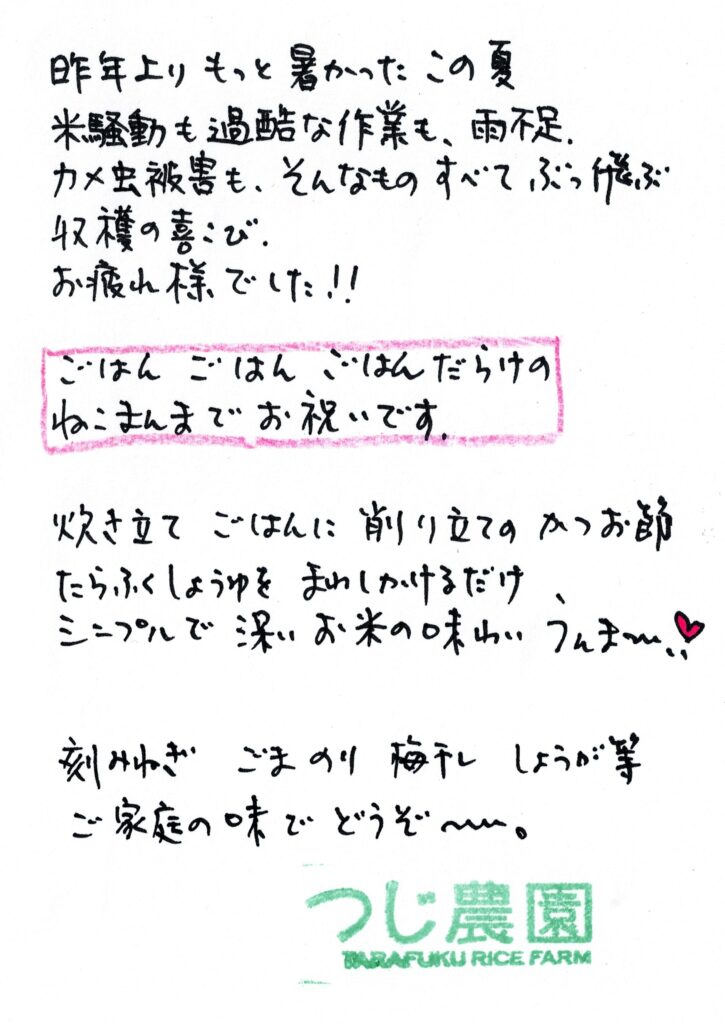 昨年より もっと 暑かった この夏
米騒動も過酷な作業も、雨不足.
カメ虫被害も、そんなもの すべて ぶっ飛ぶ
収穫の喜こび.
お疲れ様でした!!
ごはん ごはん ごはんだらけの
ねこまんまで お祝いです.
炊き立て ごはんに 削り立ての かつお節
たらふくしょうゆを まわしかけるだけ、
シンプルで 深い お米の味わい うんま〜..
刻みねぎ ごま のり 梅干し しょうが等
ご家庭の味で どうぞ〜。
つじ農園
TARAFUKU RICE FARM